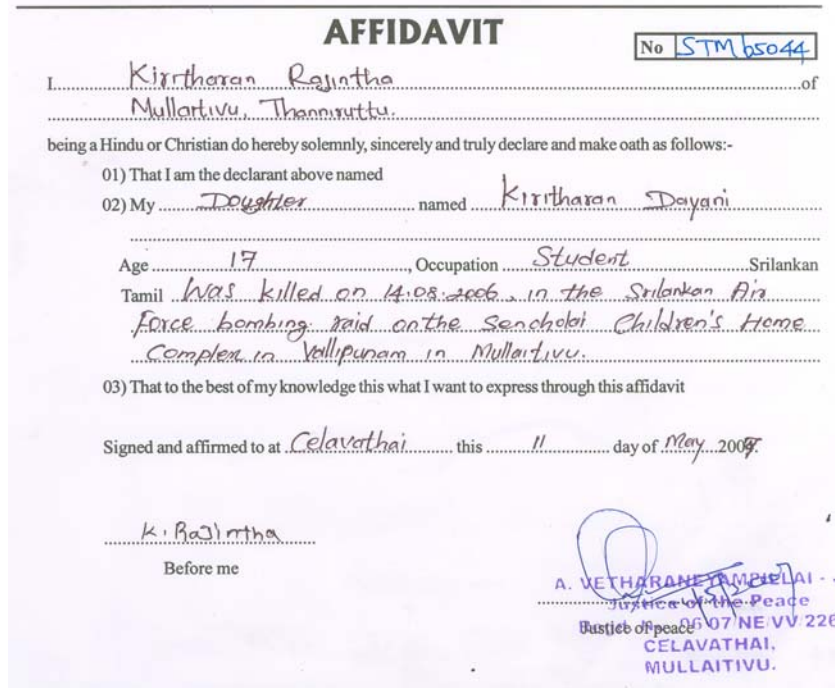 AFFIDAVIT
No STM b5044
I............Kirrtharan Rajintha............of
Mullartivu, Thanniruttu.
being a Hindu or Christian do hereby solemnly, sincerely and truly declare and make oath as follows:-
01) That I am the declarant above named
02) My ............Doughter............ named ............Kiritharan Dayani
Age ............17............, Occupation ............Student............Srilankan
Tamil Was killed on 14.08.2006, in the Srilankan Air
Force bombing raid on the Sencholai Children's Home
Complex in Vallipunam in Mullaitivu.
03) That to the best of my knowledge this what I want to express through this affidavit
Signed and affirmed to at Celavathai............ this ............11............ day of May 2007.
K. Rajintha
Before me
A. VETHARANEYAMPILLAI
Justice of the Peace
Justice of peace 06/07/NE/VV/226
CELAVATHAI,
MULLAITIVU.